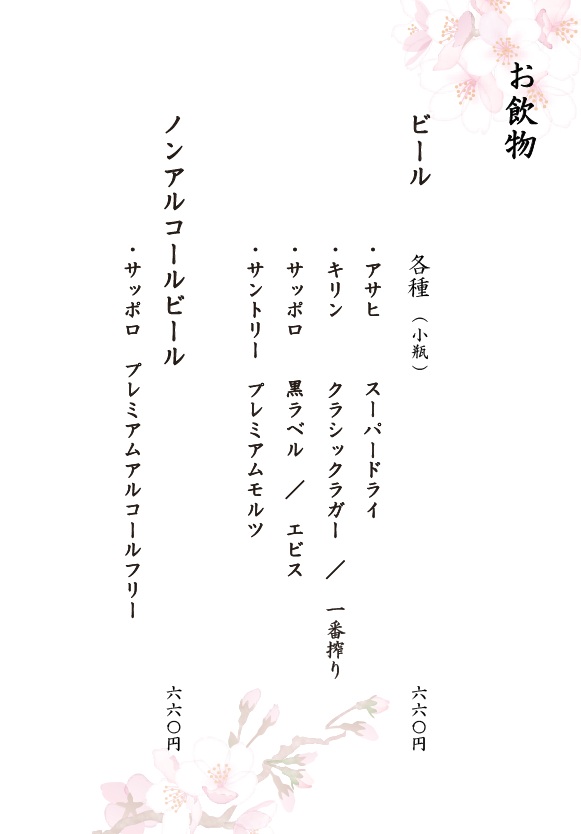 お飲物
ビール 各種（小瓶） 六六〇円
・アサヒ スーパードライ
・キリン クラシックラガー ／ 一番搾り
・サッポロ 黒ラベル ／ エビス
・サントリー プレミアムモルツ
ノンアルコールビール 六六〇円
・サッポロ プレミアムアルコールフリー